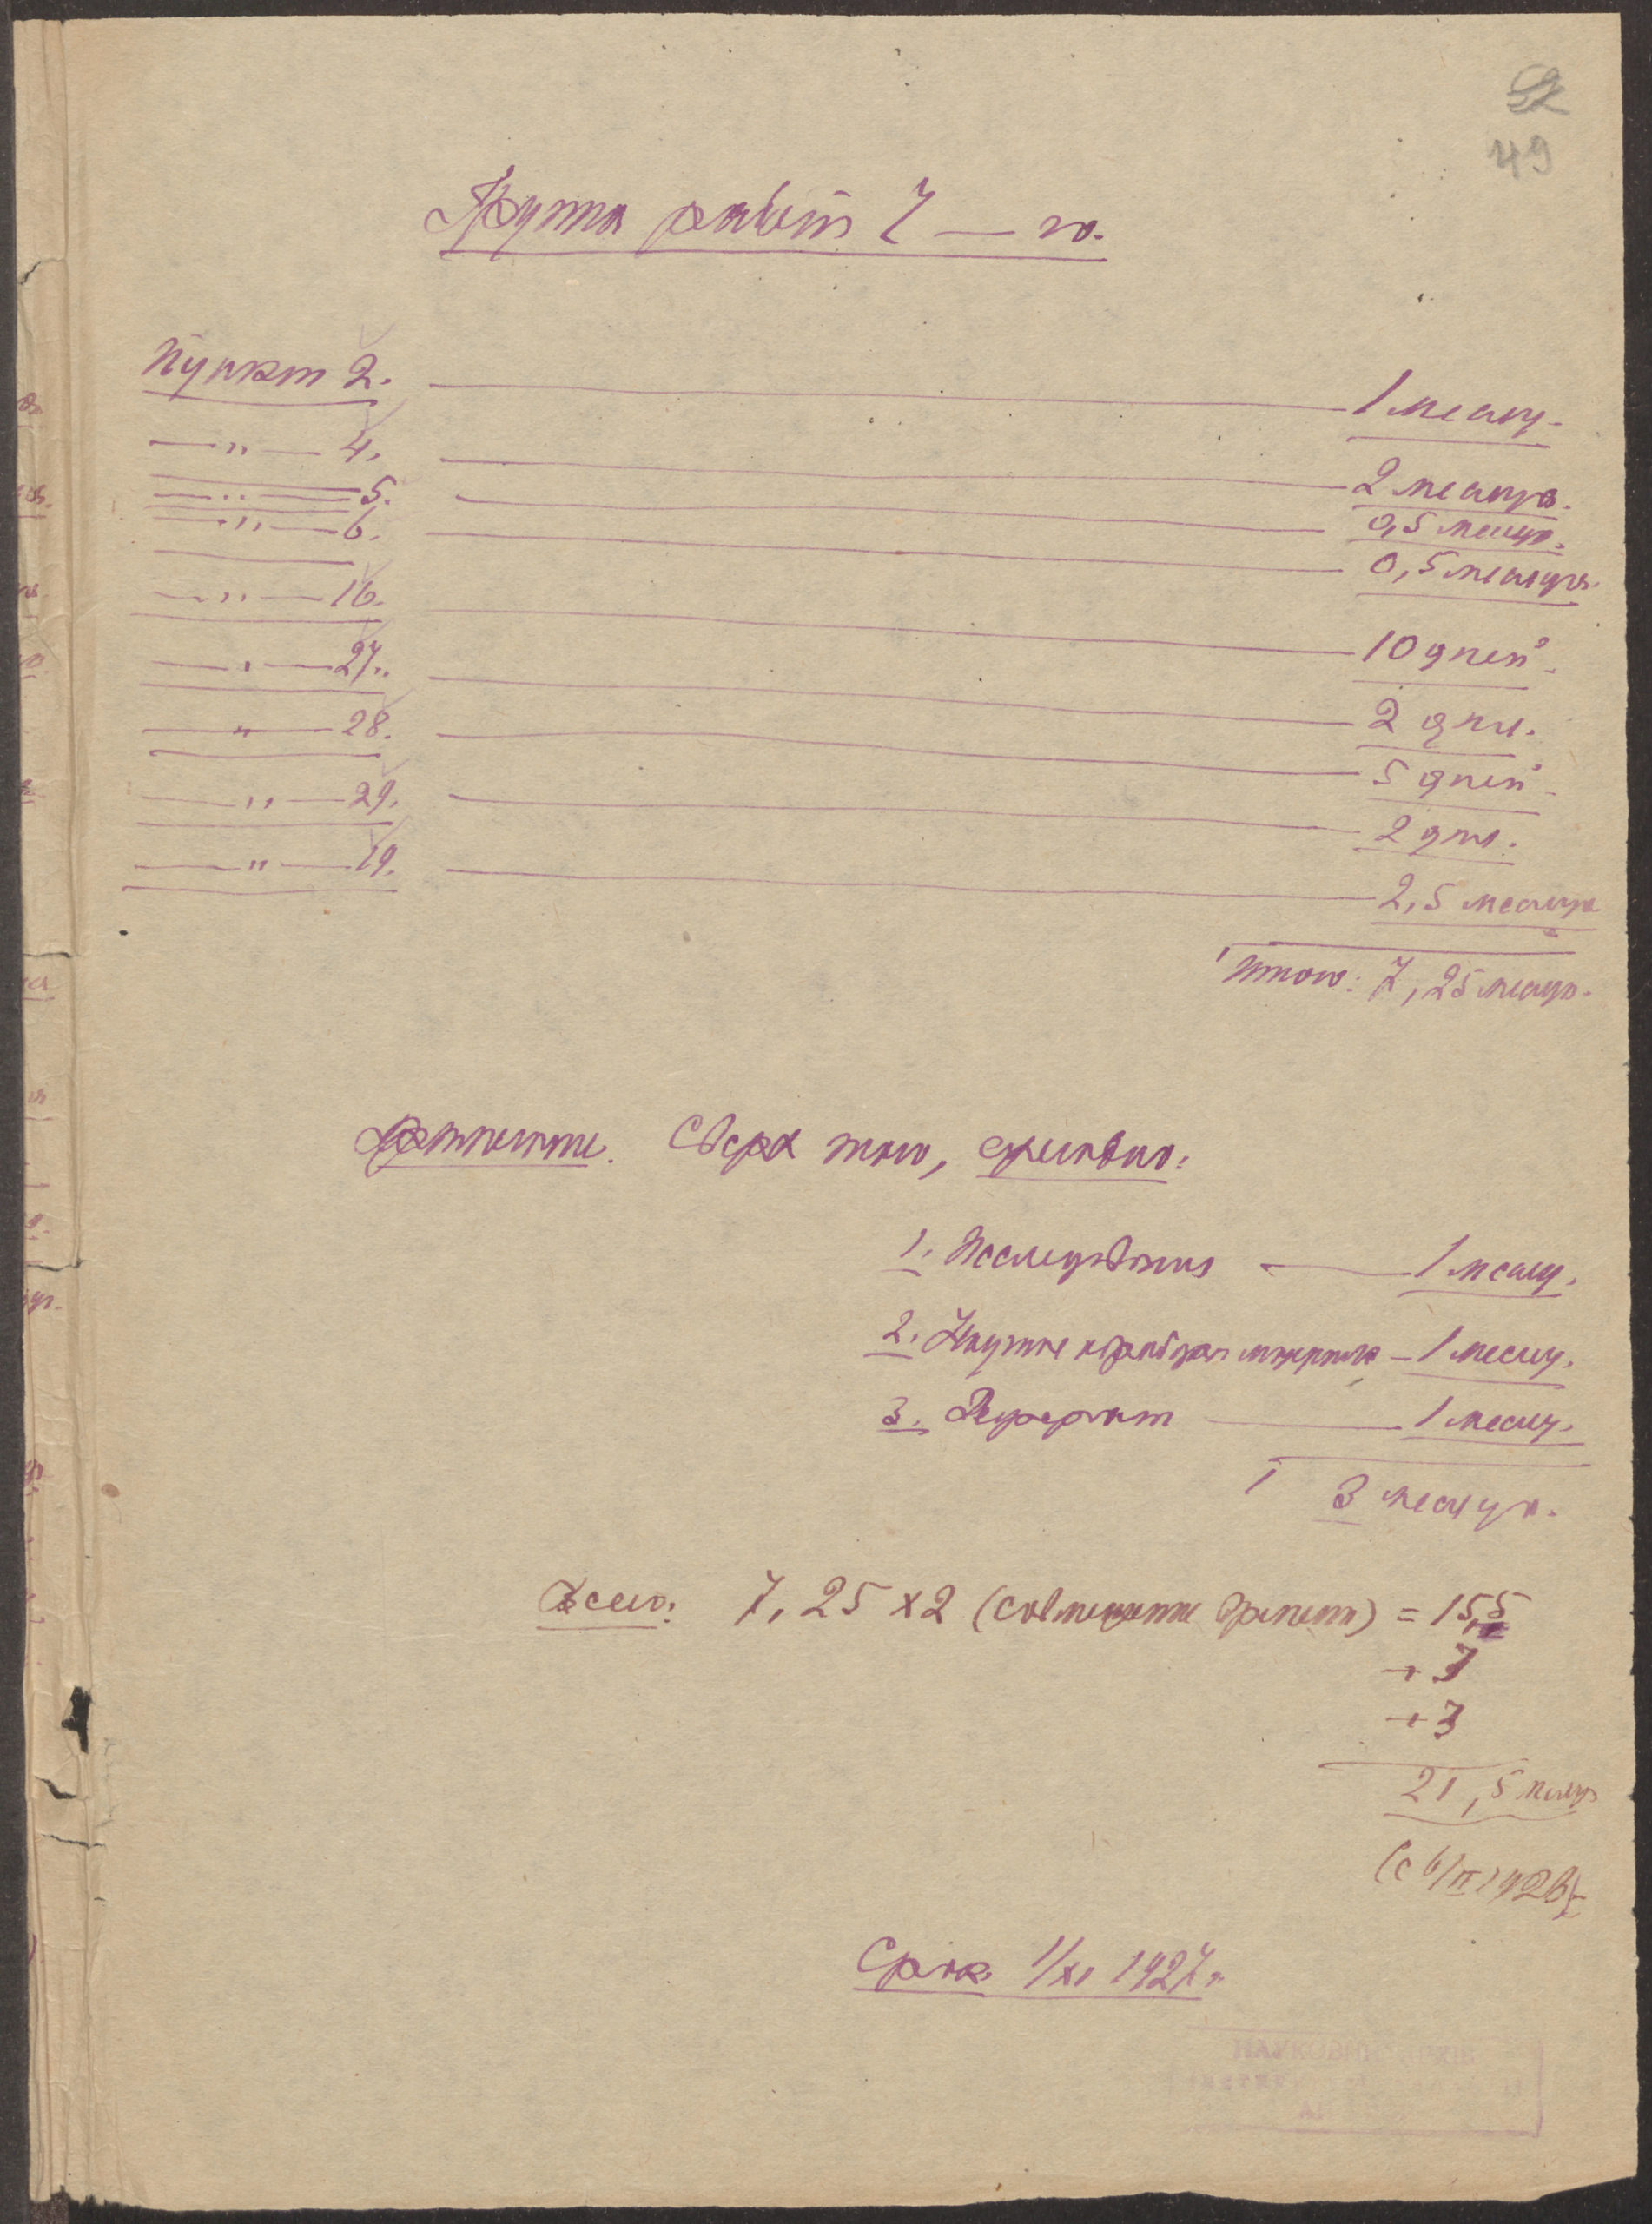 52
49
Группа работ 7 — го.
Пункт 2. — 1 месяц.
— „ — 4. — 2 месяца.
— „ — 5. — 0,5 месяца.
— „ — 6. — 0,5 месяца.
— „ — 16. — 10 дней.
— „ — 27. — 2 дня.
— „ — 28. — 5 дней.
— „ — 29. — 2 дня.
— „ — 19. — 2,5 месяца
Итого: 7,25 месяца.
Сверх того,
1. Исследования — 1 месяц.
2. материала — 1 месяц.
3. Реферат — 1 месяц.
3 месяца.
Всего: 7,25 х 2 (совмещение времени) = 15,5
+ 3
+ 3
21,5 месяц
(с 6/II 1926)
Срок. 1/XI 1927 г.
НАУКОВИЙ АРХІВ